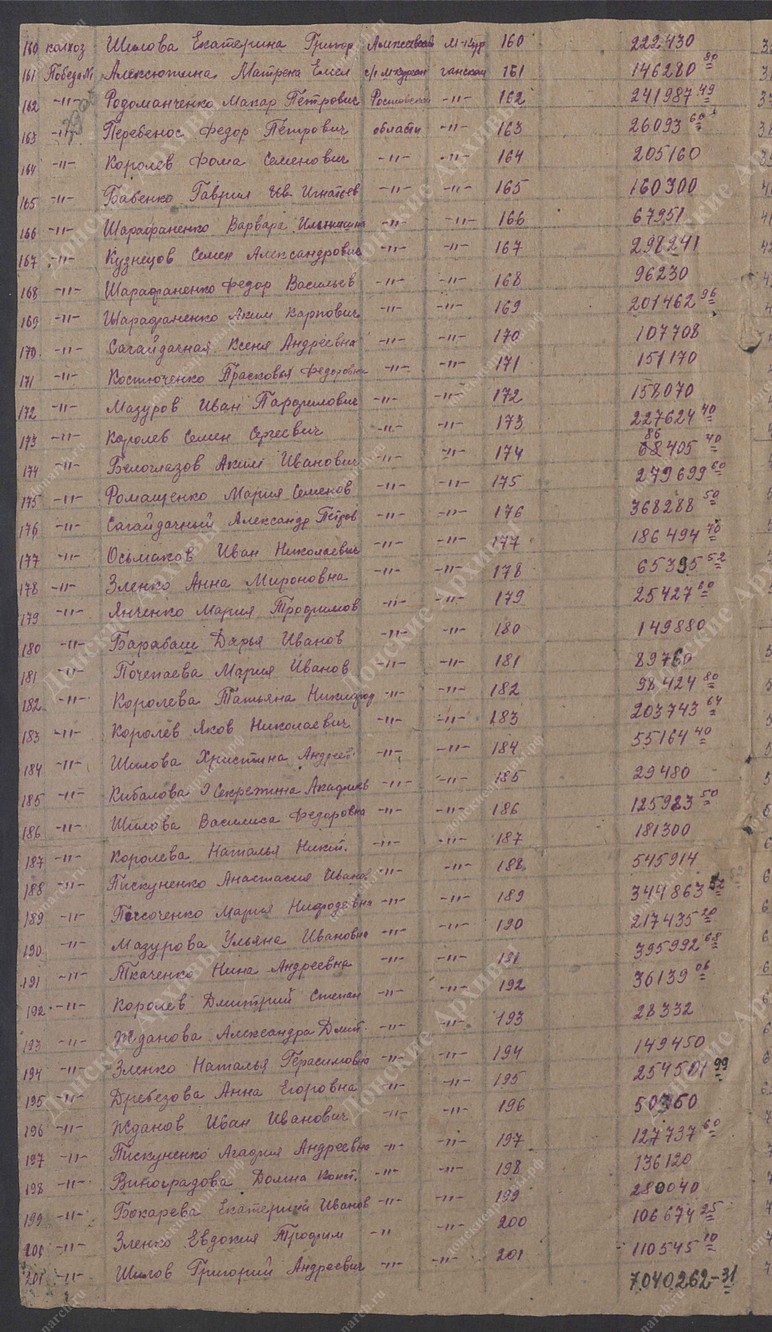 160 колхоз Шилова Екатерина Григор Алексеевский М-Кур 160 222430
161 Победа №1 Алексютина Матрена Емел с/с М-Курган ганский 161 146280 80
162 -"- Родоманченко Макар Петрович Ростовской -"- 162 241987 49
163 -"- Перебенос Федор Петрович области -"- 163 26093 60
164 -"- Королев Фома Семенович -"- -"- 164 205160
165 -"- Бабенко Гаврил Игнатов -"- -"- 165 160300
166 -"- Шарафаненко Варвара Ильинишна -"- -"- 166 67951
167 -"- Кузнецов Семен Александрович -"- -"- 167 298241
168 -"- Шарафаненко Федор Васильев -"- -"- 168 96230
169 -"- Шарафаненко Аким Карпович -"- -"- 169 201462 96
170 -"- Сагайдачная Ксеня Андреевна -"- -"- 170 107708
171 -"- Костюченко Прасковья Федоровна -"- -"- 171 151170
172 -"- Мазуров Иван Парфилович -"- -"- 172 158070
173 -"- Королев Семен Сергеевич -"- -"- 173 227624 40
174 -"- Белоглазов Аким Иванович -"- -"- 174 86 68405 40
175 -"- Ромащенко Мария Семенов -"- -"- 175 279699 60
176 -"- Сагайдачный Александр Петров -"- -"- 176 368288 50
177 -"- Осьмаков Иван Николаевич -"- -"- 177 186494 70
178 -"- Зленко Анна Мироновна -"- -"- 178 65395 52
179 -"- Янченко Мария Трофимов -"- -"- 179 25427 60
180 -"- Барабаш Дарья Иванов -"- -"- 180 149880
181 -"- Почепаева Мария Иванов -"- -"- 181 89760
182 -"- Королева Татьяна Никифор -"- -"- 182 98424 80
183 -"- Королев Яков Николаевич -"- -"- 183 203743 64
184 -"- Шилова Христина Андреев -"- -"- 184 55164 40
185 -"- Кибалова -"- -"- 185 29480
186 -"- Шилова Василиса Федоровна -"- -"- 186 125923 50
187 -"- Королева Наталья Никит. -"- -"- 187 181300
188 -"- Пискуненко Анастасия Иванов -"- 188 545914
189 -"- Песоченко Мария Нифодевна -"- -"- 189 344863 52
190 -"- Мазурова Ульяна Ивановна -"- -"- 190 217435 20
191 -"- Ткаченко Нина Андреевна -"- -"- 191 395992 68
192 -"- Королев Дмитрий Степан -"- -"- 192 36139 06
193 -"- Жданова Александра Дмит. -"- -"- 193 28332
194 -"- Зленко Наталья Герасимовна -"- -"- 194 149450
195 -"- Дребезова Анна Егоровна -"- -"- 195 254501 99
196 -"- Жданов Иван Иванович -"- -"- 196 50360
197 -"- Пискуненко Агафия Андреевна -"- -"- 197 127737 60
198 -"- Виноградова Домна Конст. -"- -"- 198 136120
199 -"- Бокарева Екатерина Иванов -"- -"- 199 280040
200 -"- Зленко Евдокия Трофим -"- -"- 200 106674 25
201 -"- Шилов Григорий Андреевич -"- -"- 201 110545 10
7040262-31